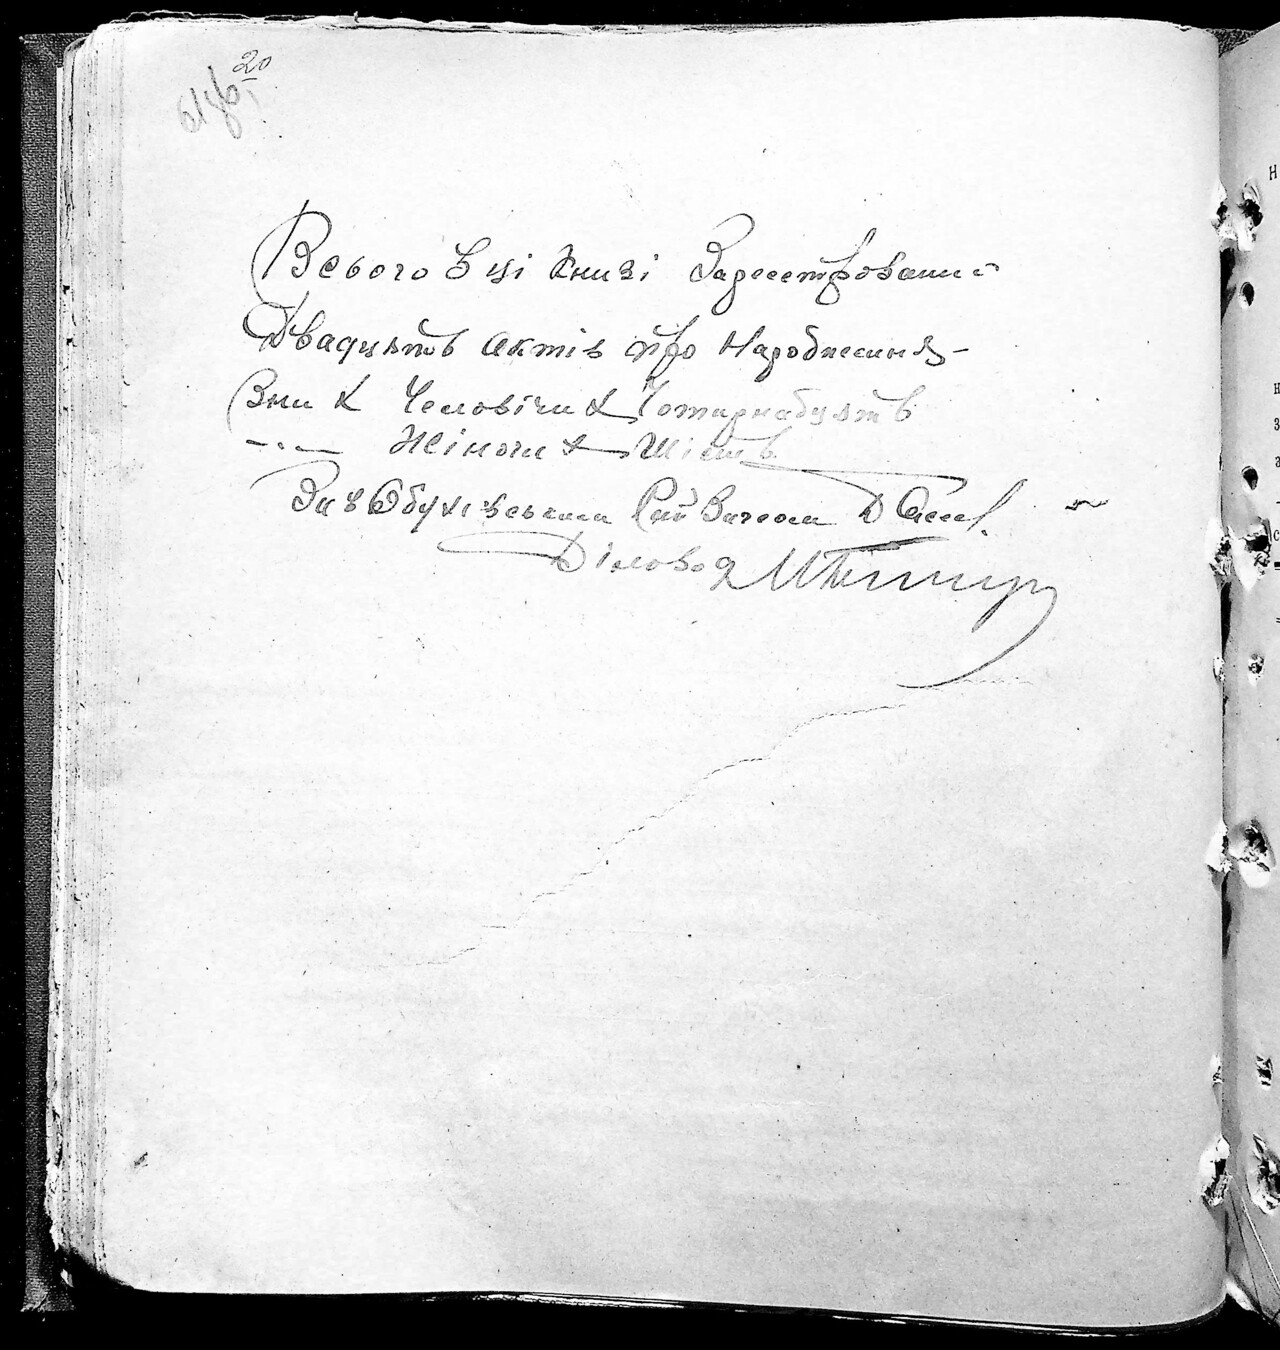 20
Всього в ці книзі Зареєстровани
Двадцять актів про Народження
Зни х Человічих Чотирнадцять
—"— Жіночи х Шість
Зав Обухівським Рай Загсом
Діловод